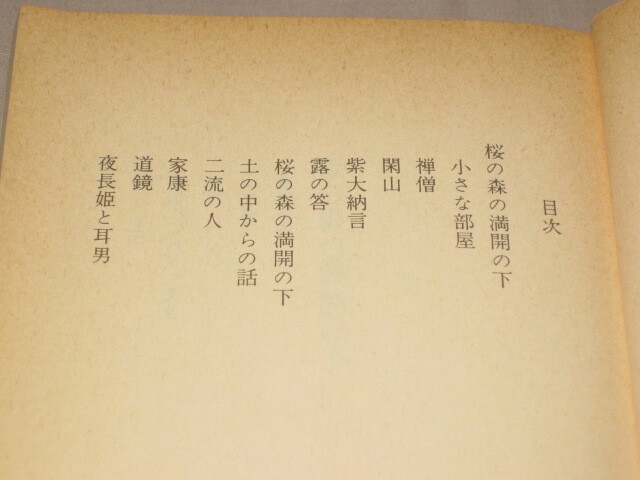 目次
桜の森の満開の下
小さな部屋
禅僧
閑山
紫大納言
露の答
桜の森の満開の下
土の中からの話
二流の人
家康
道鏡
夜長姫と耳男